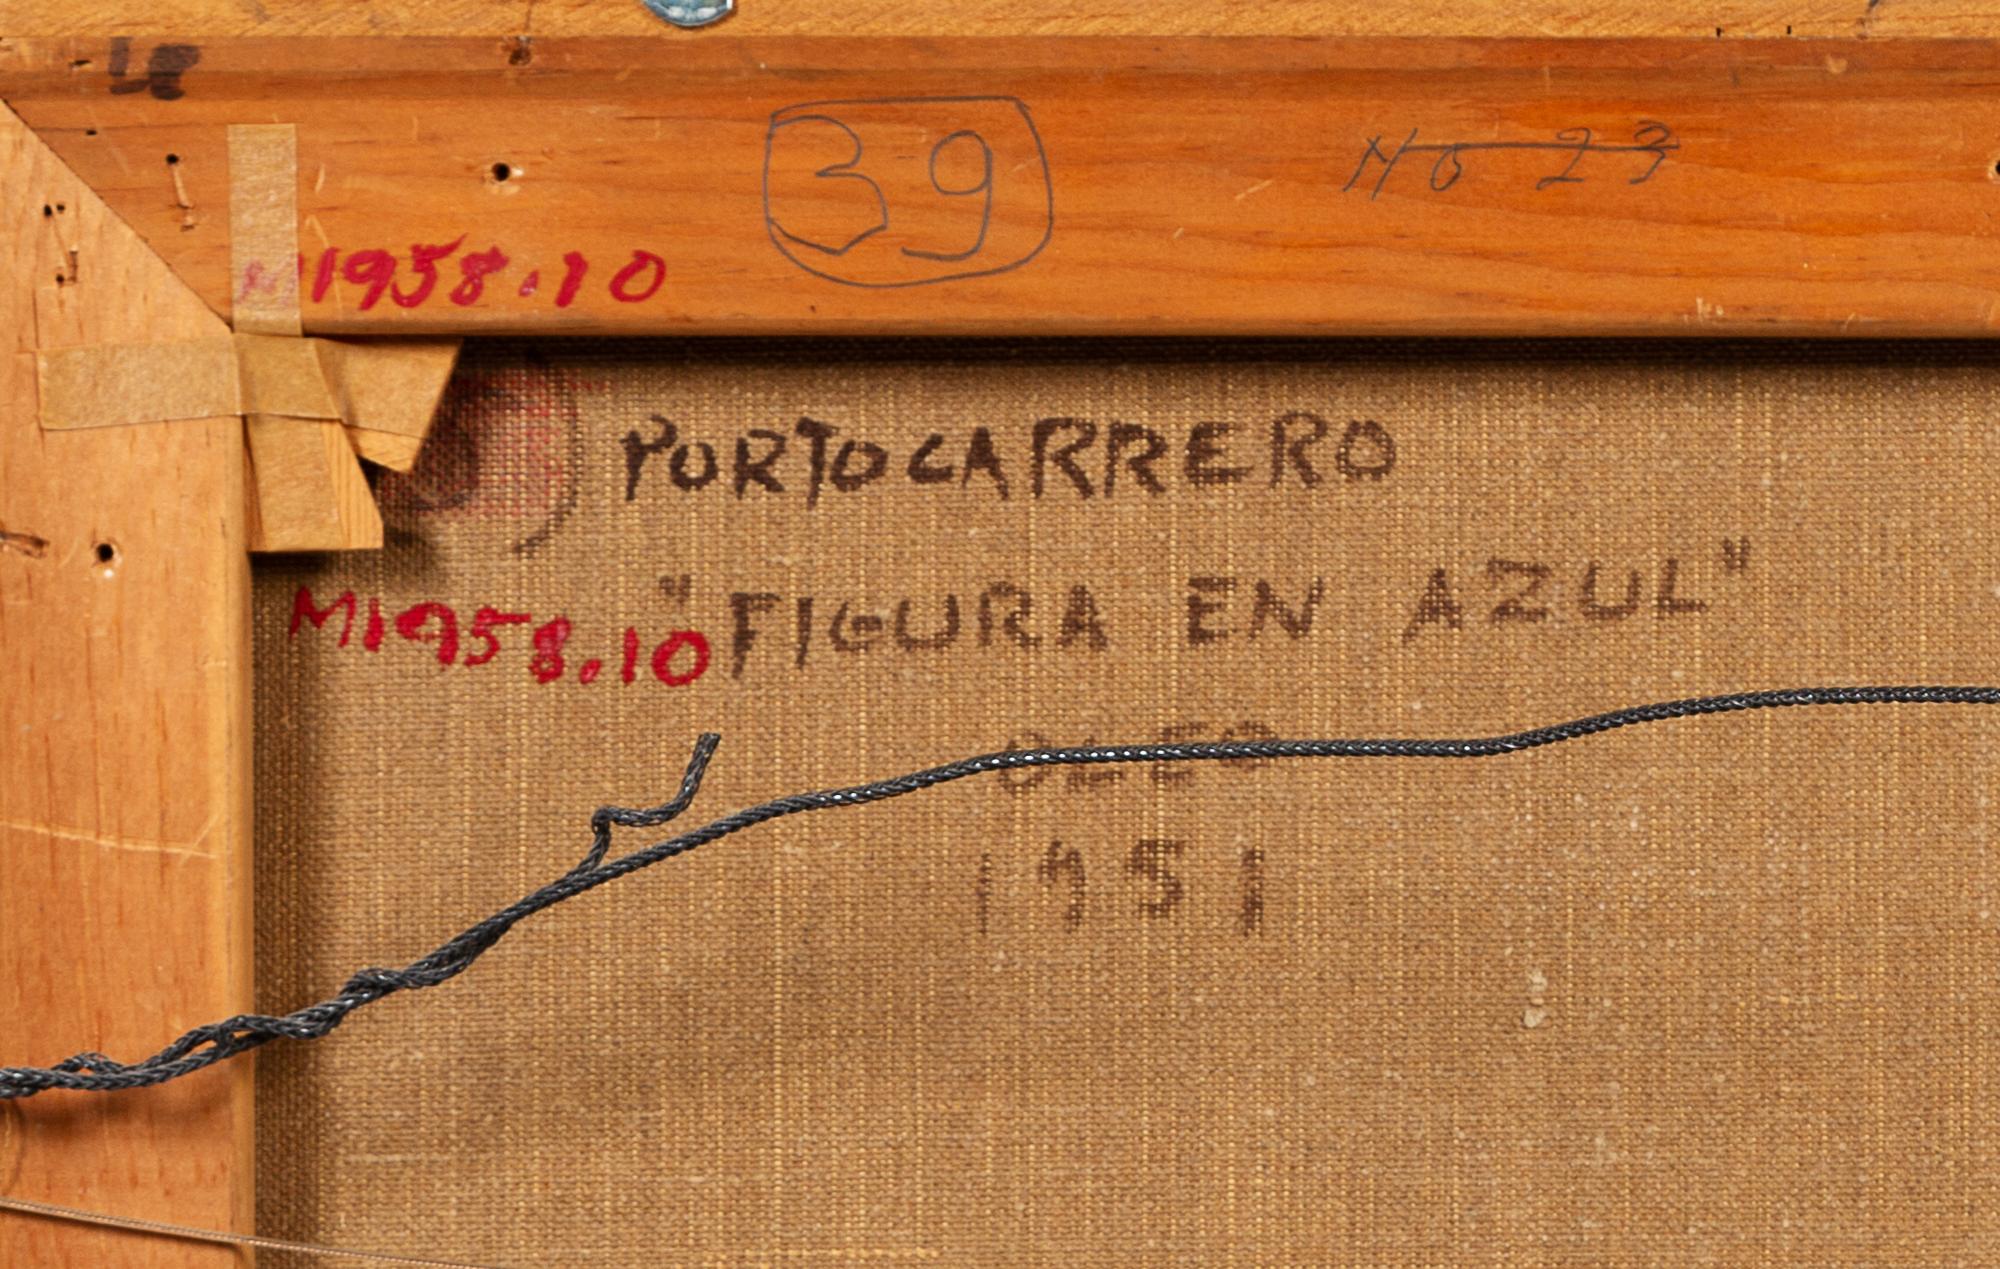 39
No 23
M1958.10
PORTOCARRERO
"FIGURA EN AZUL"
M1958.10
OLEO
1951